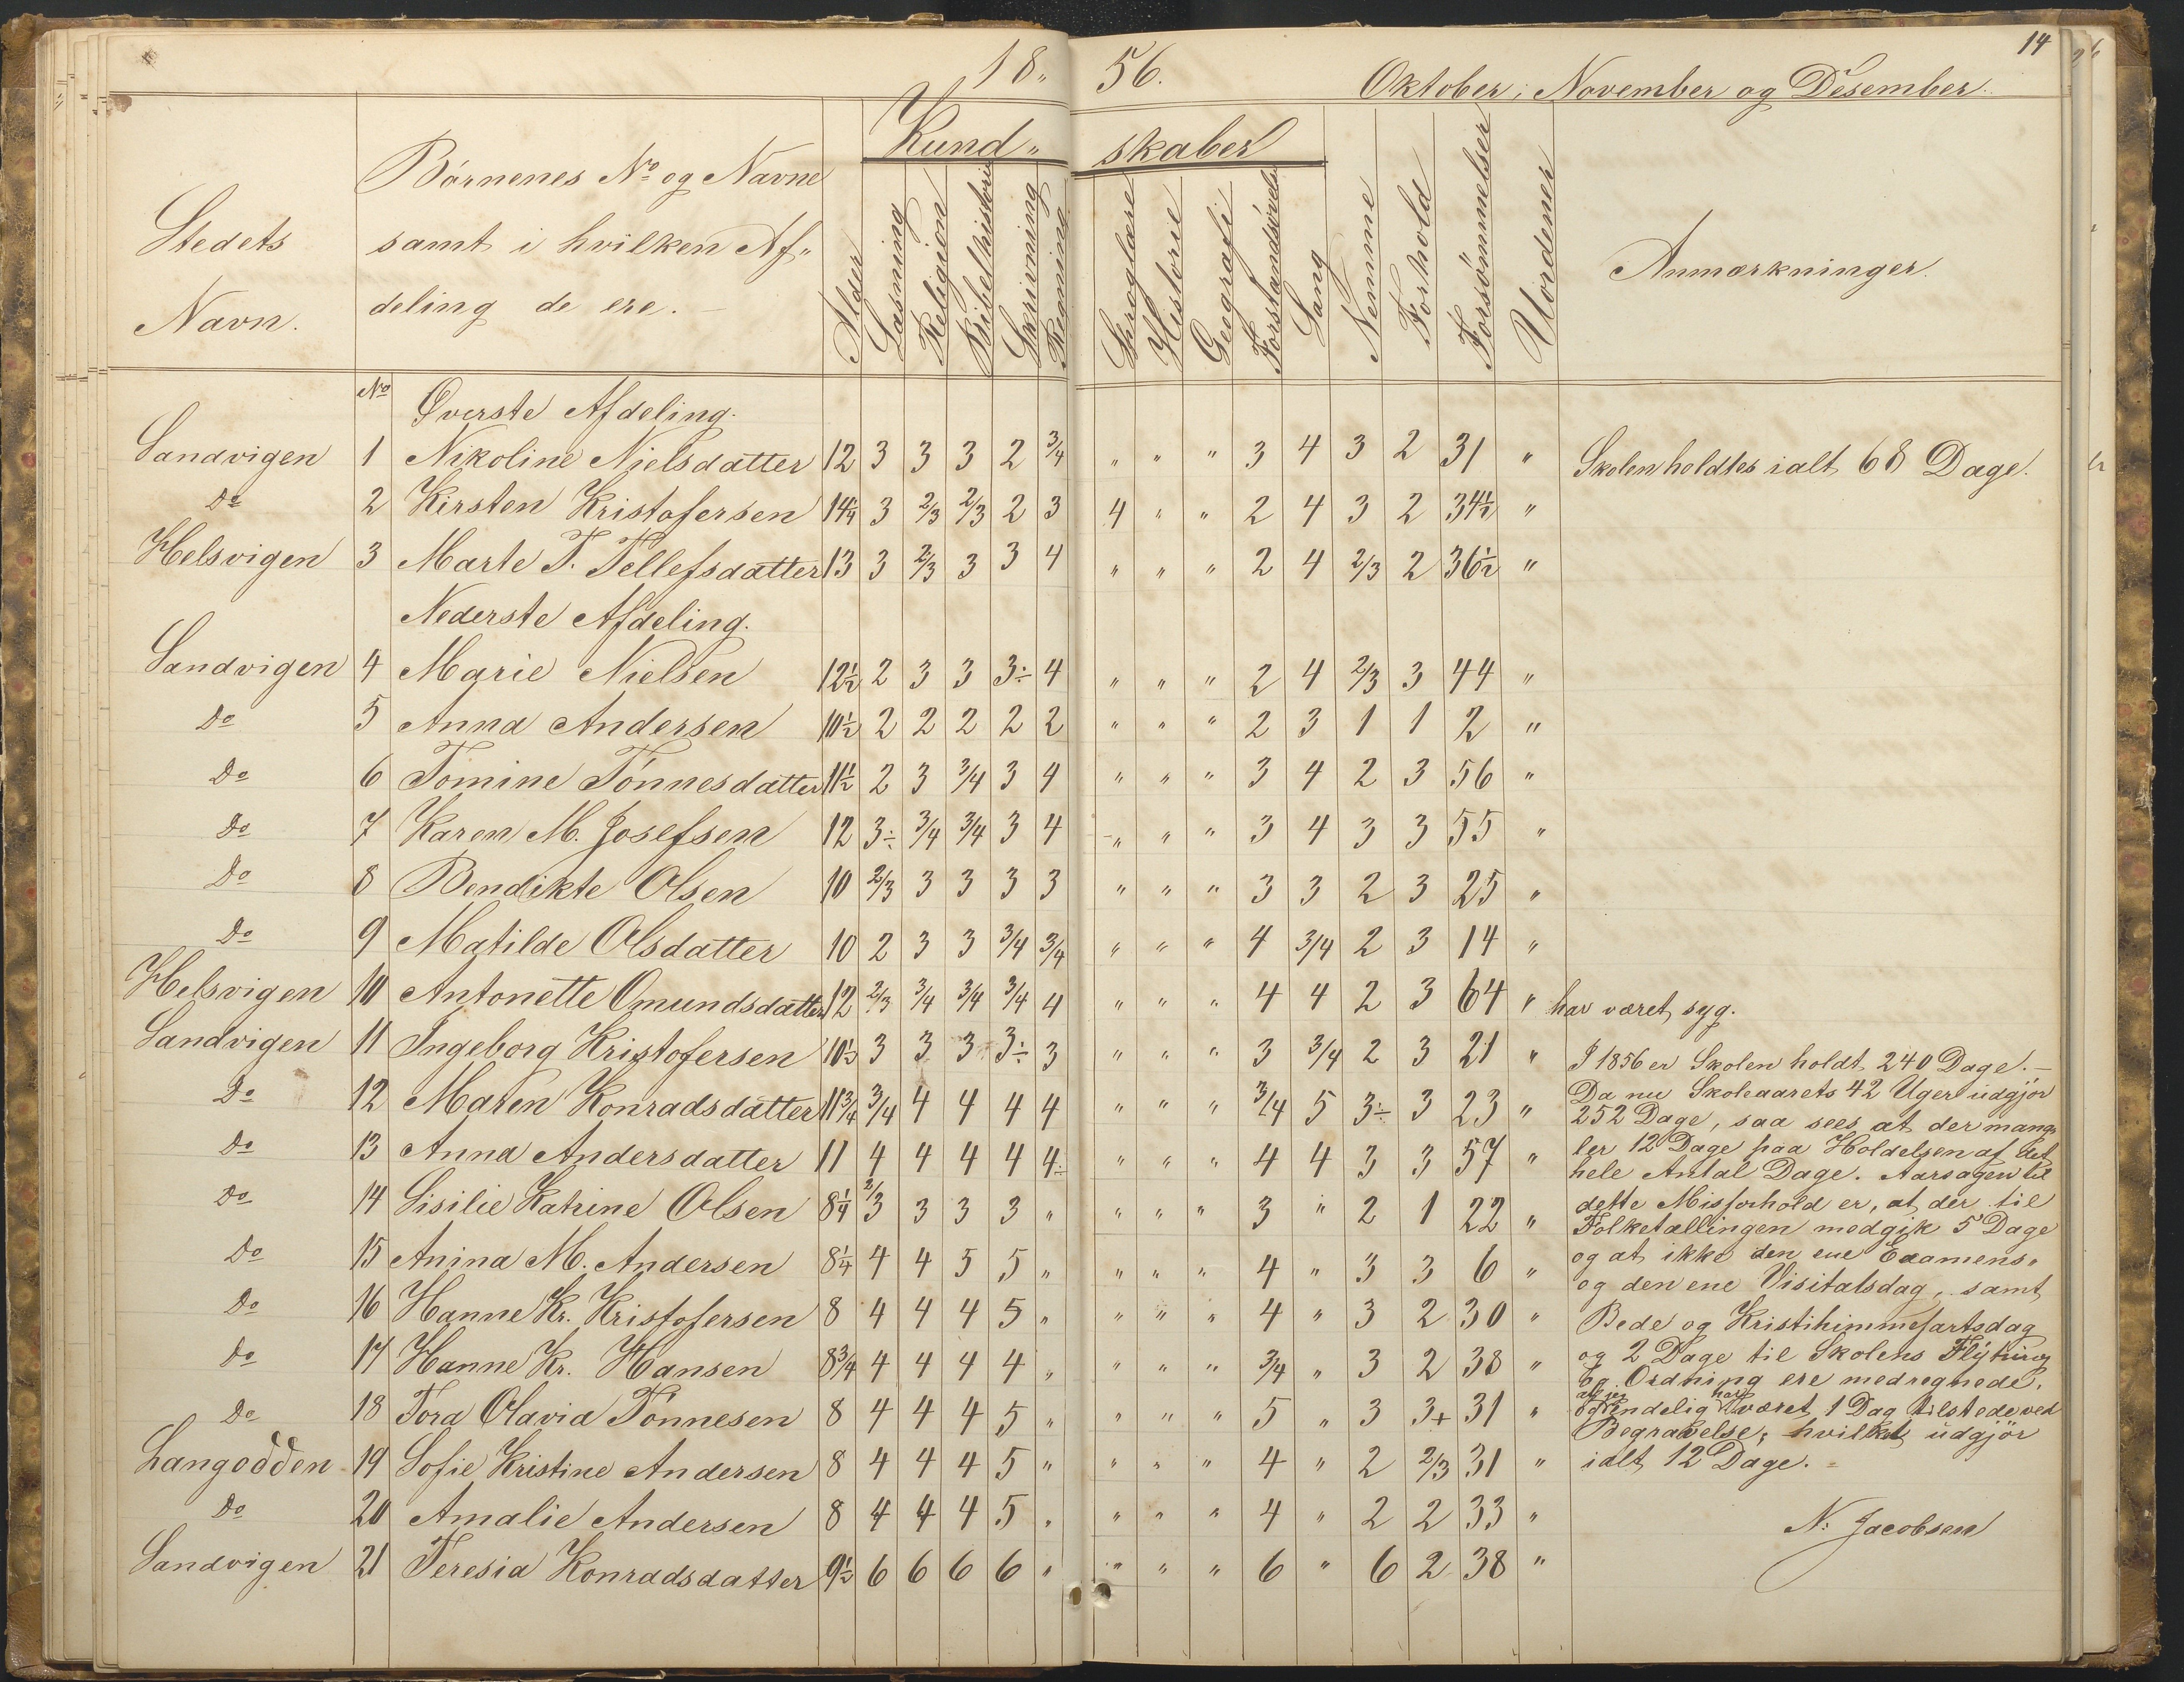 18„ 56. Oktober, November og Desember. 14
Kund„ skaber
Stedets Navn.
Börnenes No og Navne
samt i hvilken Af„
deling de ere. —
Alder
Læsning
Religion
Bibelhistorie
Skrivning
Regning
Historie
Geografi
Sang
Nemme
Forhold
Forsömmelser
Uordener
Anmærkninger.
No Överste Afdeling.
Sandvigen 1 Nikoline Nielsdatter 12 3 3 3 2 3/4 „ „ „ 3 4 3 2 31 „ Skolen holdtes ialt 68 Dage.
Do 2 Kirsten Kristofersen 14 1/4 3 2/3 2/3 2 3 4 „ „ 2 4 3 2 34 1/2 „
Helsvigen 3 Marte T. Tellefsdatter 13 3 2/3 3 3 4 „ „ „ 2 4 2/3 2 36 1/2 „
Nederste Afdeling.
Sandvigen 4 Marie Nielsen 12 1/2 2 3 3 3÷ 4 „ „ „ 2 4 2/3 3 44 „
Do 5 Anna Andersen 10 1/2 2 2 2 2 2 „ „ „ 2 3 1 1 2 „
Do 6 Tomine Tönnesdatter 11 1/2 2 3 3/4 3 4 „ „ „ 3 4 2 3 56 „
Do 7 Karen M. Josefsen 12 3÷ 3/4 3/4 3 4 „ „ „ 3 4 3 3 55 „
Do 8 Bendikte Olsen 10 2/3 3 3 3 3 „ „ „ 3 3 2 3 25 „
Do 9 Matilde Olsdatter 10 2 3 3 3/4 3/4 „ „ „ 4 3/4 2 3 14 „
Helsvigen 10 Antonette Omundsdatter 12 2/3 3/4 3/4 3/4 4 „ „ „ 4 4 2 3 64 „ har været syg.
Sandvigen 11 Ingeborg Kristofersen 10 1/2 3 3 3 3÷ 3 „ „ „ 3 3/4 2 3 21 „
Do 12 Maren Konradsdatter 11 3/4 3/4 4 4 4 4 „ „ „ 3/4 5 3÷ 3 23 „
Do 13 Anna Andersdatter 11 4 4 4 4 4÷ „ „ „ 4 4 3 3 57 „
Do 14 Sisilie Katrine Olsen 8 1/4 2/3 3 3 3 „ „ „ „ 3 „ 2 1 22 „
Do 15 Anina M. Andersen 8 1/4 4 4 5 5 „ „ „ „ 4 „ 3 3 6 „
Do 16 Hanne Kr. Kristofersen 8 4 4 4 5 „ „ „ „ 4 „ 3 2 30 „
Do 17 Hanne Kr. Hansen 8 3/4 4 4 4 4 „ „ „ „ 3/4 „ 3 2 38 „
Do 18 Tora Olavia Tönnesen 8 4 4 4 5 „ „ „ „ 5 „ 3 3+ 31 „
Langodden 19 Sofie Kristine Andersen 8 4 4 4 5 „ „ „ „ 4 „ 2 2/3 31 „
Do 20 Amalie Andersen 8 4 4 4 5 „ „ „ „ 4 „ 2 2 33 „
Sandvigen 21 Teresia Konradsdatter 9 1/2 6 6 6 6 „ „ „ „ 6 „ 6 2 38 „
I 1856 er Skolen holdt 240 Dage. —
Da nu Skoleaarets 42 Uger udgjör
252 Dage, saa sees at der mang„
ler 12 Dage paa Holdelsen af det
hele Antal Dage. Aarsagen til
dette Misforhold er, at der til
Folketællingen medgik 5 Dage
og at ikke den ene Examens„
og den ene Visitatsdag, samt
Bede og Kristihimmelfartsdag
og 2 Dage til Skolens Flytning
og Ordning ere medregnede.
og endelig at jeg har været 1 Dag tilstede ved
Begravelse, hvilket udgjör
ialt 12 Dage.
N: Jacobsen